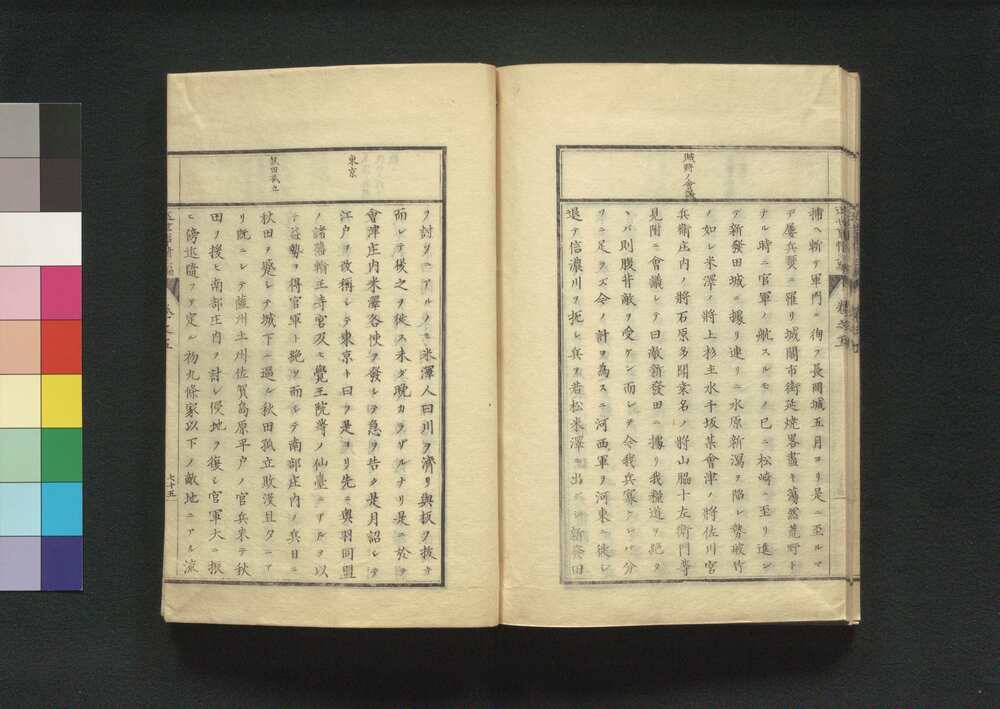 賊將ノ會議
捕ヘ斬テ軍門ニ徇フ長岡城五月ヨリ是ニ至ルマ
デ屢兵燹ニ罹リ城閣市街延燒畧盡キ蕩然荒野ト
ナル時ニ官軍ノ航スルモノ已ニ松﨑ニ至リ進ン
デ新發田城ニ據リ連リニ水原新潟ヲ陷レ勢破竹
ノ如シ米澤ノ將上杉主水千坂某會津ノ將佐川官
兵衛庄内ノ將石原多門桑名ノ將山脇十左衛門等
見附ニ會議シテ曰敵新發田ニ據リ我糧道ヲ絶タ
ンバ則腹背敵ヲ受ケン而シテ今我兵寡ク 分
ヲニ足ラズ今ノ計ヲ爲スニ河西軍ヲ河東ニ徙シ
退テ信濃川ヲ扼シ兵ヲ若松米澤ニ出シ 新發田
東京
秋田孤立
ヲ討 ニアルノミ米澤人曰川ヲ濟リ與板ヲ拔キ
而シテ後之ヲ徙ス未タ晩カラザルナリ是ニ於テ
會津庄内米澤各使ヲ發シテ急ヲ告ク是月詔シテ
江戸ヲ改稱シテ東京ト曰フ是ヨリ先ニ奥羽同盟
ノ諸藩輪王寺宮及ヒ覺王院等ノ仙臺ニ ヲ以
テ益勢ヲ得官軍ト絶ツ而シテ南部庄内ノ兵日ニ
秋田ヲ蹙シテ城下ニ逼ル秋田孤立敗没且夕ニア
リ既ニシテ薩州土州佐賀島原平戸ノ官兵來テ秋
田ヲ援ヒ南部庄内ヲ討シ侵地ヲ復シ官軍大ニ振
ヒ傍近隨 テ定ル初九條家以下ノ敵地ニアル流
七十五